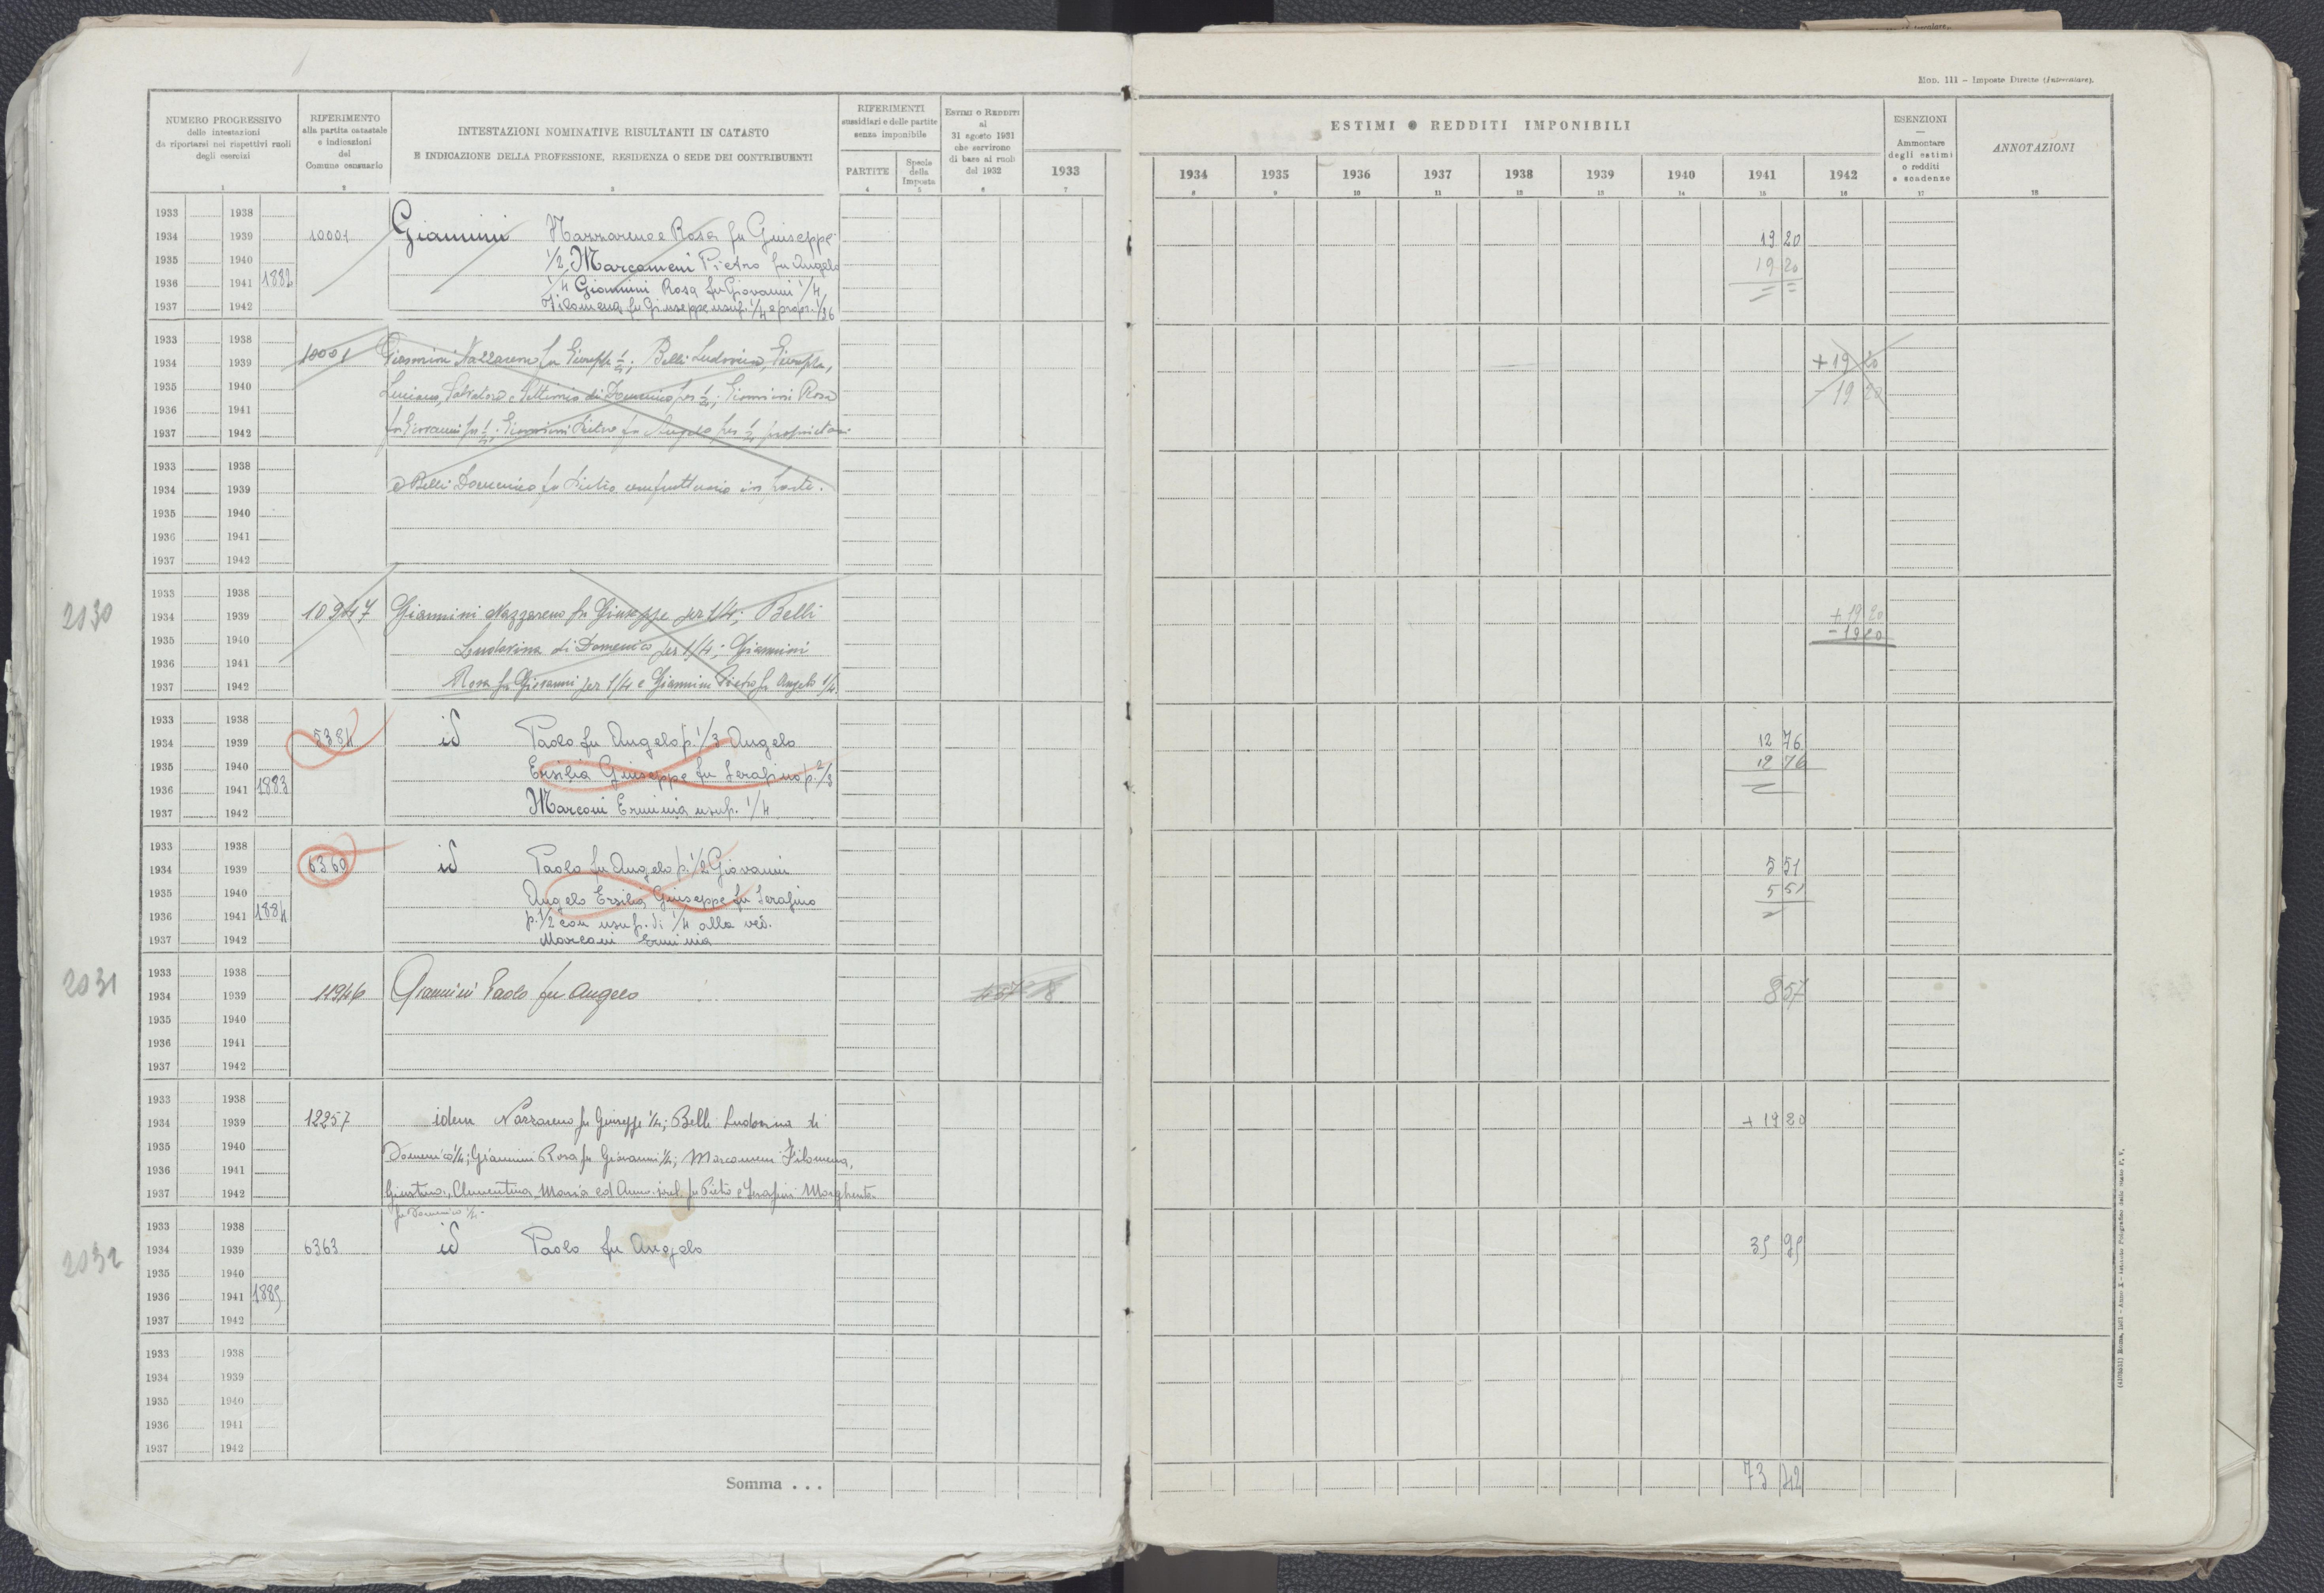 Mod. 111 - Imposte Dirette (Intercalare).
NUMERO PROGRESSIVO
delle intestazioni
da riportarsi nei rispettivi ruoli
degli esercizi
1
RIFERIMENTO
alla partita catastale
e indicazioni
del
Comune censuario
2
INTESTAZIONI NOMINATIVE RISULTANTI IN CATASTO
E INDICAZIONE DELLA PROFESSIONE, RESIDENZA O SEDE DEI CONTRIBUENTI
3
RIFERIMENTI
sussidiari e delle partite
senza imponibile
PARTITE
4
Specie
della
Imposta
5
ESTIMI O REDDITI
al
31 agosto 1931
che servirono
di base ai ruoli
del 1932
6
1933
7
ESTIMI O REDDITI IMPONIBILI
1934 1935 1936 1937 1938 1939 1940 1941 1942
8 9 10 11 12 13 14 15 16
ESENZIONI
Ammontare
degli estimi
o redditi
e scadenze
17
ANNOTAZIONI
18
1933 1938
1934 1939 10001 Giannini Nazzareno e Rosa fu Giuseppe 19 20
1935 1940 1/2 Marcomeni Pietro fu Angelo 19 20
1936 1941 1882 1/4 Giannini Rosa fu Giovanni 1/4
1937 1942 Filomena fu Giuseppe usuf. 1/4 e propr. 1/36
1933 1938
1934 1939 10001 Giannini Nazzareno fu Giuseppe; Belli Ludovina, Giuseppe, + 19 20
1935 1940 Luciano, Salvatore e Settimia di Domenico per; Giannini Rosa - 19 20
1936 1941
1937 1942 fu Giovanni per; Giannini Pietro fu Angelo per proprietari
1933 1938
1934 1939 e Belli Domenico fu Pietro usufruttuario in parte.
1935 1940
1936 1941
1937 1942
1933 1938
2030 1934 1939 10947 Giannini Nazzareno fu Giuseppe per 1/4; Belli + 19 20
1935 1940 Ludovina di Domenico per 1/4; Giannini - 19 20
1936 1941
1937 1942 Rosa fu Giovanni per 1/4 e Giannini Pietro fu Angelo 1/4
1933 1938
1934 1939 5384 id Paolo fu Angelo p. 1/3 Angelo 12 76
1935 1940 Ersilia Giuseppe fu Serafino p. 2/3 12 76
1936 1941 1883
1937 1942 Marconi Erminia usuf. 1/4
1933 1938
1934 1939 6360 id Paolo fu Angelo p. 1/2 Giovanni 5 51
1935 1940 Angelo Ersilia Giuseppe fu Serafino 5 51
1936 1941 1884 p. 1/2 con usuf. di 1/4 alla ved.
1937 1942 Marconi Erminia
1933 1938
2031 1934 1939 11946 Giannini Paolo fu Angelo 8 57
1935 1940
1936 1941
1937 1942
1933 1938
1934 1939 12257 idem Nazzareno fu Giuseppe 1/4; Belli Ludovina di + 19 20
1935 1940 Domenico 1/4; Giannini Rosa fu Giovanni 1/4; Marcomeni Filomena,
1936 1941
1937 1942 Giustina, Clementina, Maria ed Anna fu Pietro e Serafini Margherita
fu Domenico 1/4
1933 1938
2032 1934 1939 6363 id Paolo fu Angelo 35 95
1935 1940
1936 1941 1885
1937 1942
1933 1938
1934 1939
1935 1940
1936 1941
1937 1942
Somma . . . 73 42